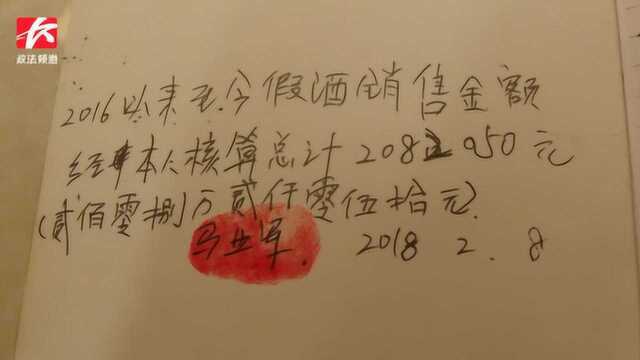 政法频道
2016以来至今假酒销售金额
经本人核算总计2082050元
(贰佰零捌万贰仟零伍拾元).
2018 2. 8